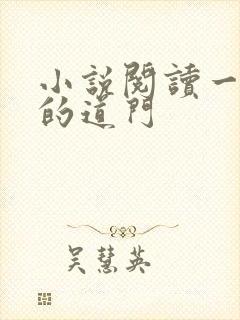 小說閱讀一
的道門
吳慧英